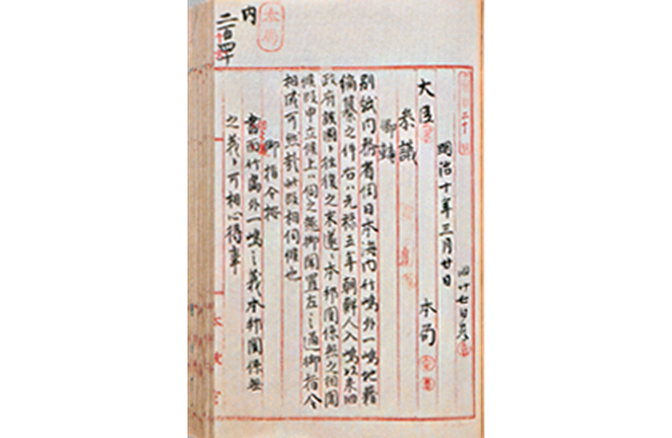 明治十年三月廿日
大臣 本局
参議
卿輔
別紙内務省伺日本海内竹嶋外一嶋地籍
編纂之件右ハ元禄五年朝鮮人入嶋以来旧
政府該国ト往復之末遂ニ本邦関係無之相聞
候段申立候上ハ伺之趣御聞置左之通御指令
相成可然哉此段相伺候也
御指令按
書面竹島外一嶋之義本邦関係無
之義ト可相心得事
太政官
本局
内